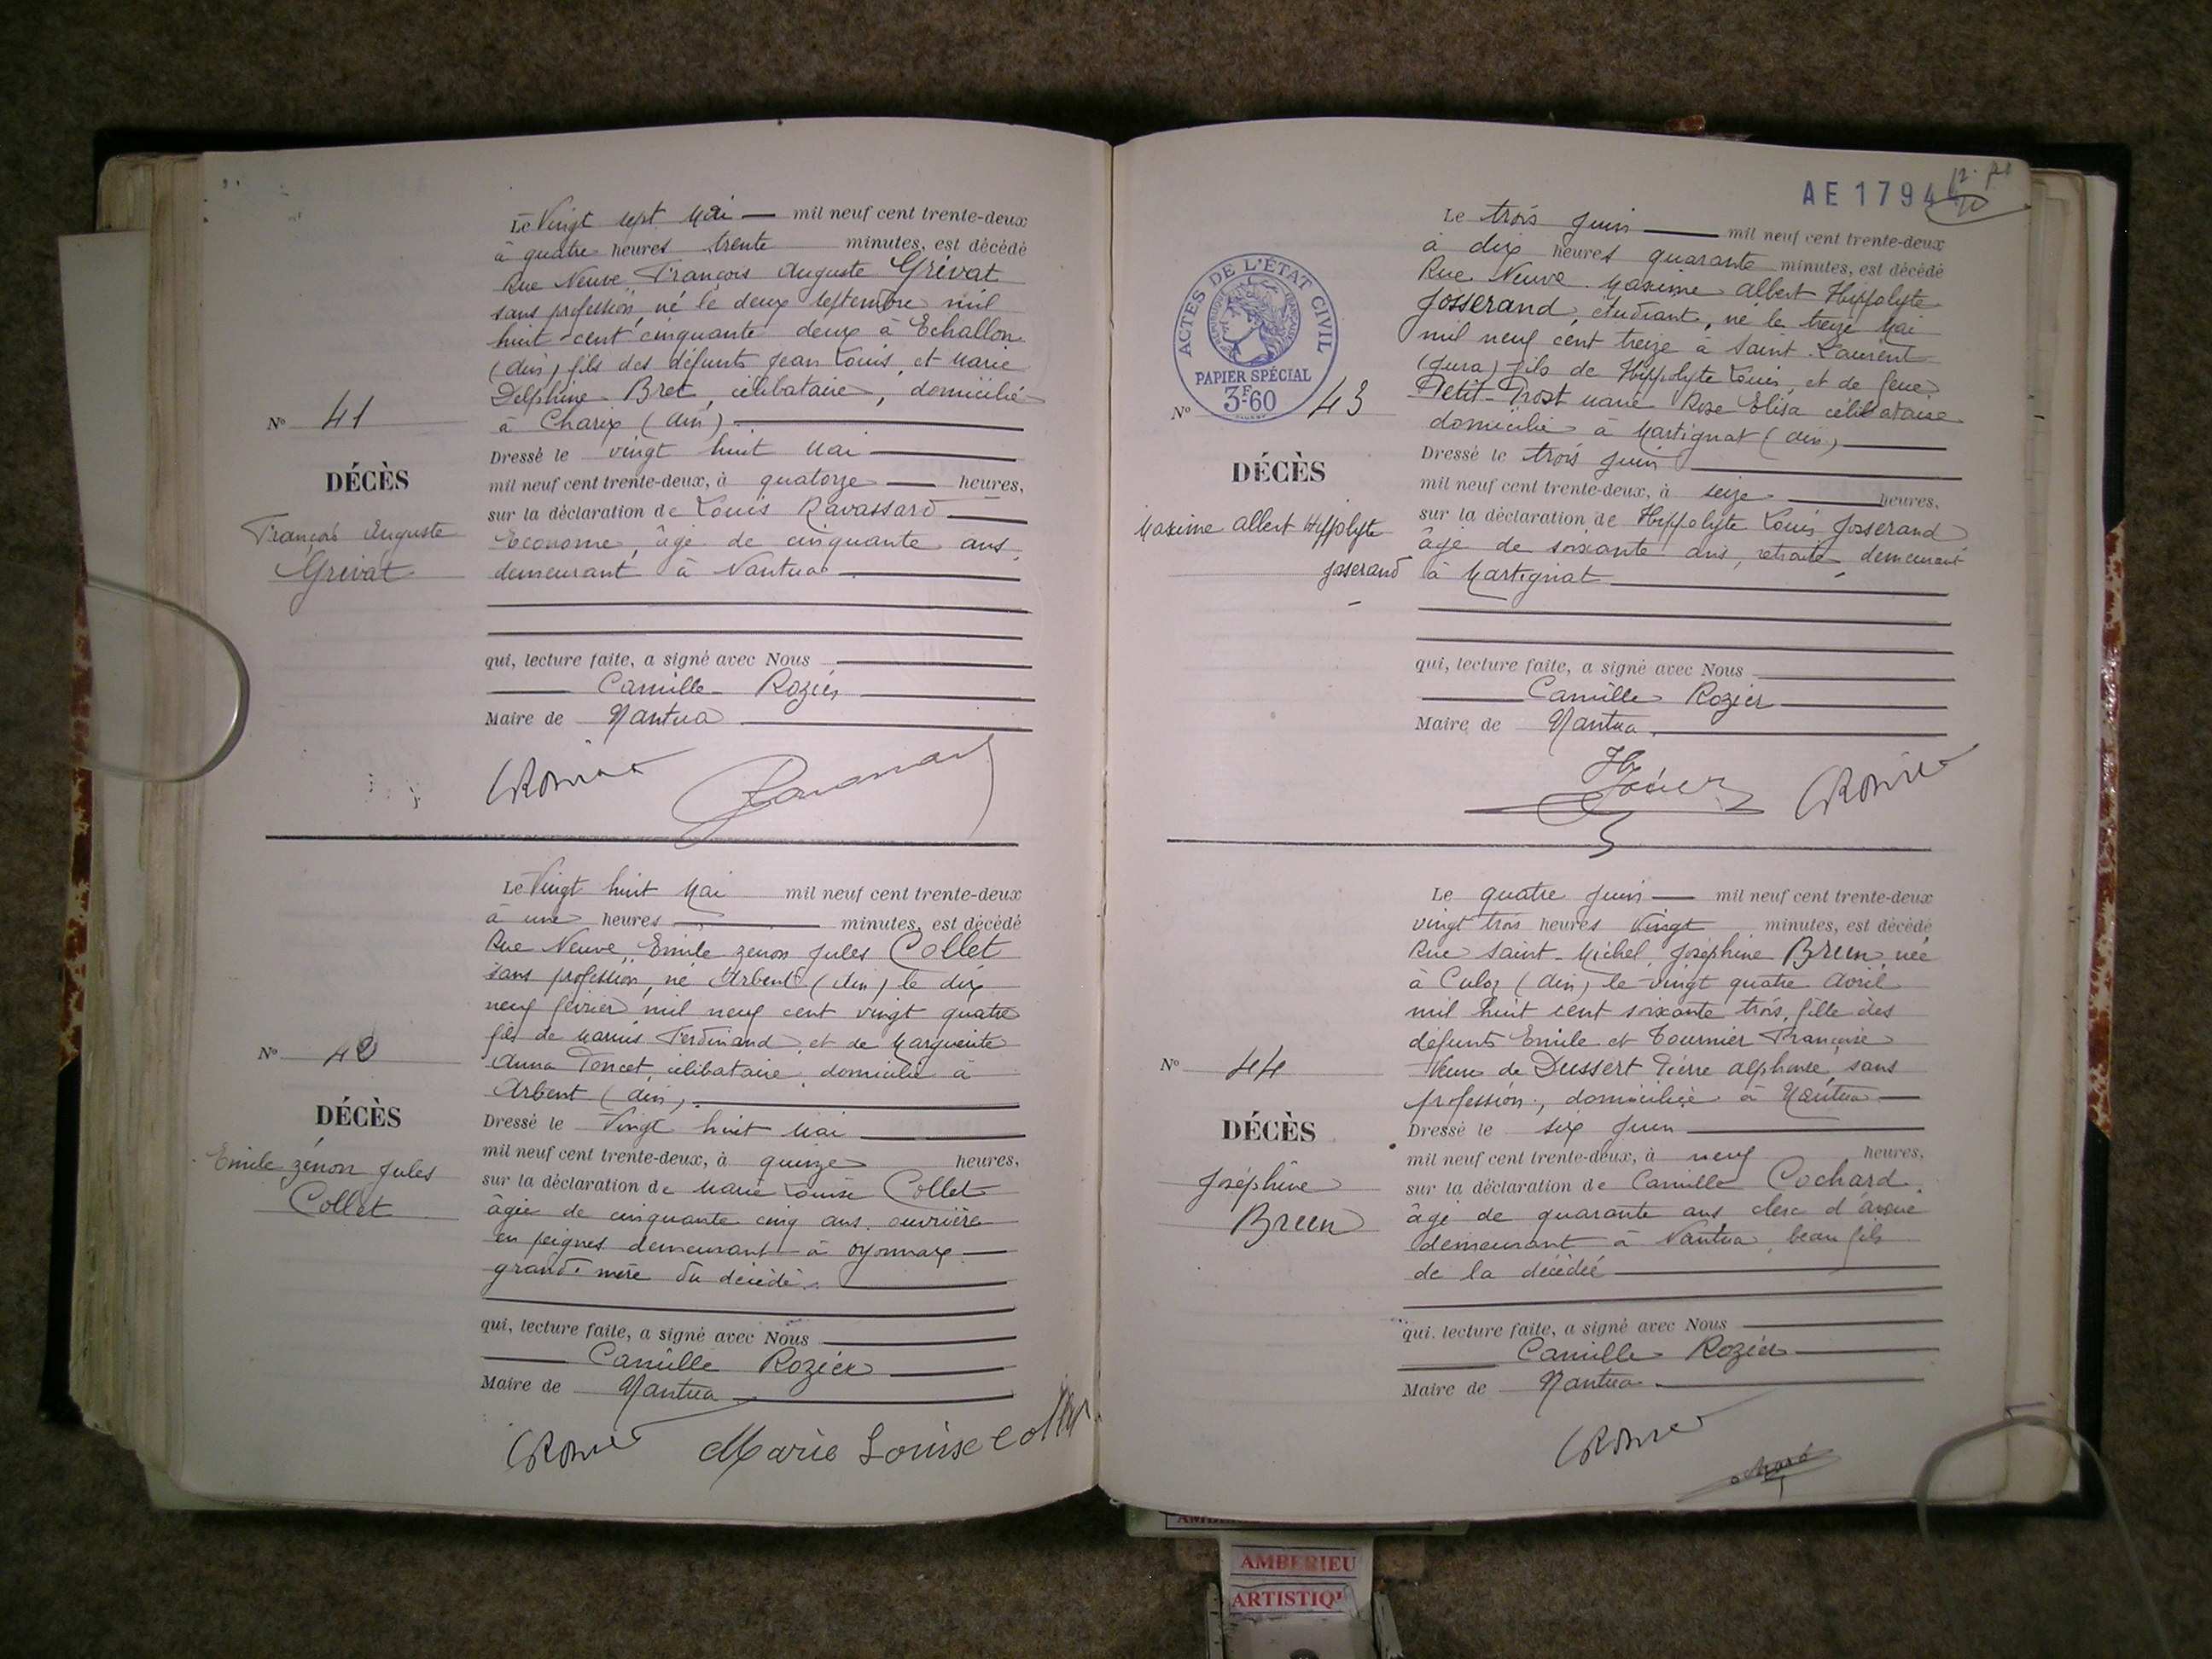 Le Vingt sept Mai — mil neuf cent trente-deux
à quatre heures trente minutes, est décédé
Rue Neuve François Auguste Grivat
sans profession, né le deux septembre mil
huit-cent cinquante deux à Echallon
(Ain) fils des défunts Jean Louis, et Marie
Delphine Bret, célibataire, domicilié
à Charix (Ain)
Nº 41
Dressé le vingt huit Mai
DÉCÈS
mil neuf cent trente-deux, à quatorze heures,
sur la déclaration de Louis Ravassard
François Auguste
Grivat
Econome, âgé de cinquante ans,
demeurant à Nantua
qui, lecture faite, a signé avec Nous
Camille Rozier
Maire de Nantua
Le Vingt huit Mai mil neuf cent trente-deux
à une heures minutes, est décédé
Rue Neuve, Emile Zénon Jules Collet
sans profession, né Arbent (Ain) le dix
neuf février mil neuf cent vingt quatre
fils de Marius Ferdinand, et de Marguerite
Anna Poncet, célibataire, domicilié à
Arbent (Ain),
Nº 42
Dressé le Vingt huit Mai
DÉCÈS
mil neuf cent trente-deux, à quinze heures,
Emile Zénon Jules
Collet
sur la déclaration de Marie Louise Collet
âgée de cinquante cinq ans, ouvrière
en peignes demeurant à Oyonnax
grand'mère du décédé.
qui, lecture faite, a signé avec Nous
Camille Rozier
Maire de Nantua
Marie Louise Collet
AE 1794
Le trois Juin mil neuf cent trente-deux
à dix heures quarante minutes, est décédé
Rue Neuve Maxime Albert Hippolyte
Josserand, étudiant, né le treize Mai
mil neuf cent treize à Saint-Laurent
(Jura) fils de Hippolyte Louis, et de feue
Petit-Prost Marie Rose Elisa célibataire
domicilié à Martignat (Ain)
ACTES DE L'ÉTAT CIVIL
RÉPUBLIQUE FRANÇAISE
PAPIER SPÉCIAL
3F60
Nº 43
Dressé le trois Juin
DÉCÈS
mil neuf cent trente-deux, à seize heures,
Maxime Albert Hippolyte
Josserand
sur la déclaration de Hippolyte Louis Josserand
âgé de soixante ans, retraité, demeurant
à Martignat
qui, lecture faite, a signé avec Nous
Camille Rozier
Maire de Nantua
Le quatre Juin — mil neuf cent trente-deux
vingt trois heures Vingt minutes, est décédé
Rue Saint-Michel, Joséphine Breen, née
à Culoz (Ain) le vingt quatre Avril
mil huit cent soixante trois, fille des
défunts Emile et Tournier Françoise
Veuve de Dussert Pierre Alphonse, sans
profession, domiciliée à Nantua
Nº 44
Dressé le six Juin
DÉCÈS
mil neuf cent trente-deux, à neuf heures,
Joséphine
Breen
sur la déclaration de Camille Cochard
âgé de quarante ans clerc d'avoué
demeurant à Nantua, beau fils
de la décédée
qui, lecture faite, a signé avec Nous
Camille Rozier
Maire de Nantua
AMBERIEU
ARTISTIQ